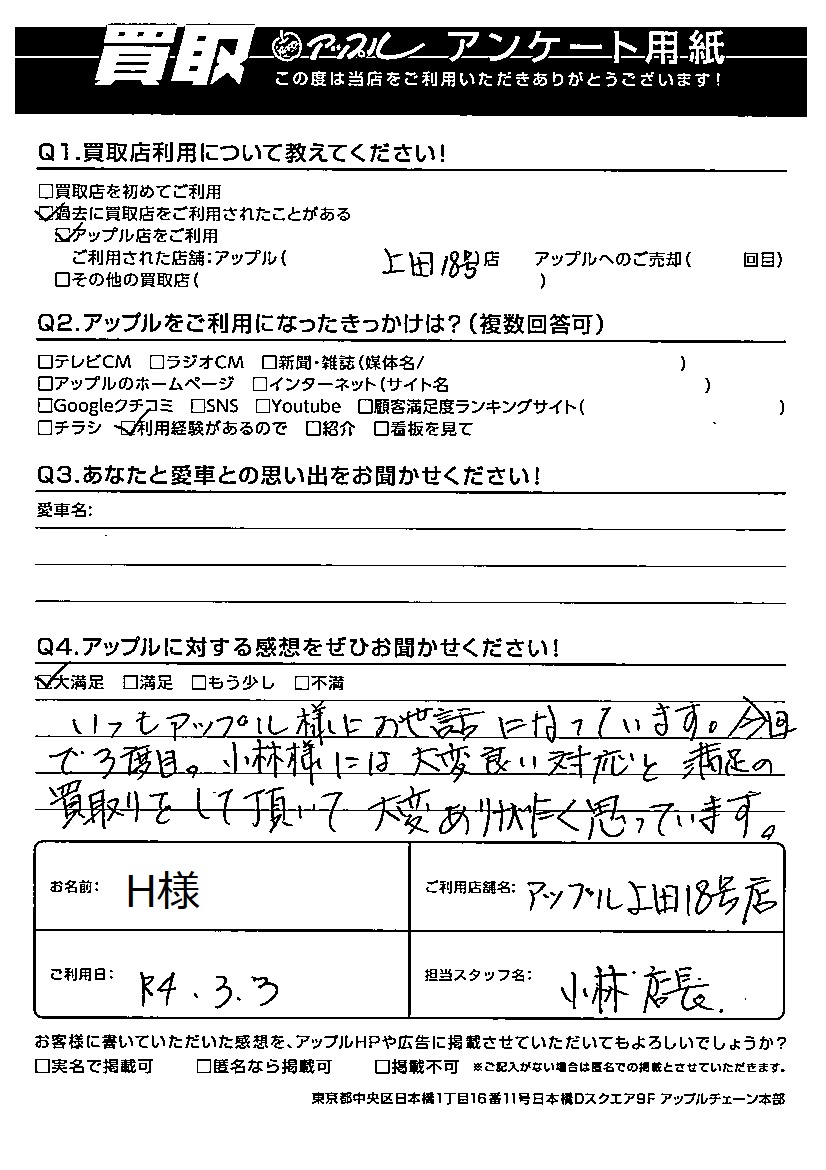 買取 アップル アンケート用紙
この度は当店をご利用いただきありがとうございます!
Q1.買取店利用について教えてください!
□買取店を初めてご利用
☑過去に買取店をご利用されたことがある
☑アップル店をご利用
ご利用された店舗:アップル( 上田18号店 アップルへのご売却( 回目)
□その他の買取店( )
Q2.アップルをご利用になったきっかけは?(複数回答可)
□テレビCM □ラジオCM □新聞・雑誌(媒体名/ )
□アップルのホームページ □インターネット(サイト名 )
□Googleクチコミ □SNS □Youtube □顧客満足度ランキングサイト( )
□チラシ ☑利用経験があるので □紹介 □看板を見て
Q3.あなたと愛車との思い出をお聞かせください!
愛車名:
Q4.アップルに対する感想をぜひお聞かせください!
☑大満足 □満足 □もう少し □不満
いつもアップル様にお世話になっています。今回
で3度目。小林様には大変良い対応と満足の
買取りをして頂いて大変ありがたく思っています。
お名前: H様 ご利用店舗名: アップル上田18号店
ご利用日: R4.3.3 担当スタッフ名: 小林店長.
お客様に書いていただいた感想を、アップルHPや広告に掲載させていただいてもよろしいでしょうか?
□実名で掲載可 □匿名なら掲載可 □掲載不可 ※ご記入がない場合は匿名での掲載とさせていただきます。
東京都中央区日本橋1丁目16番11号日本橋Dスクエア9F アップルチェーン本部